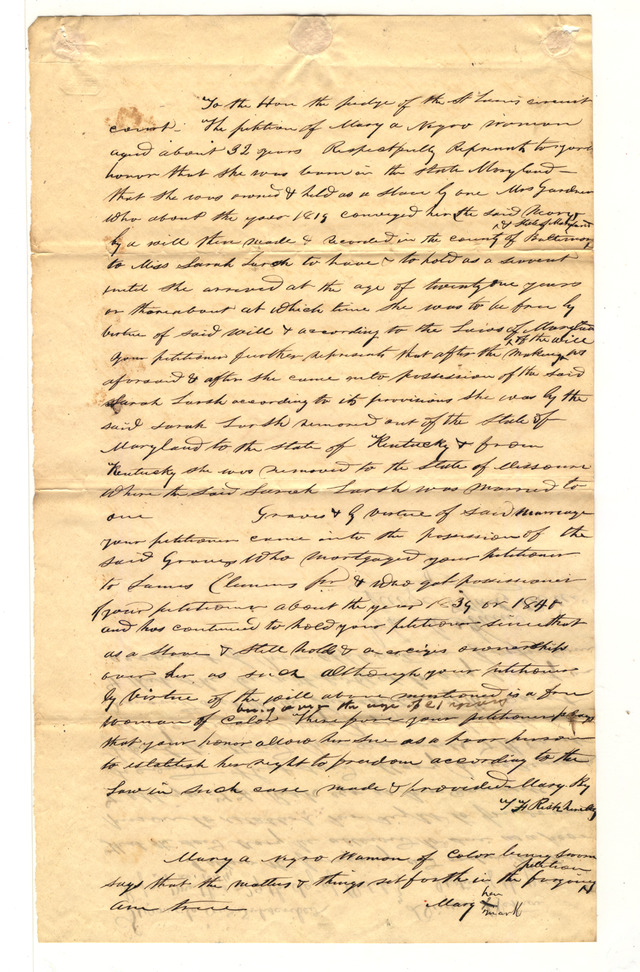 To the Hon the judge of the St Louis circuit
court - The petition of Mary a Negro woman
aged about 32 years Respectfully Represents to your
honor that she was born in the state Maryland -
that she was owned & held as a slave by one Mrs Gardner
Who about the year 1819 conveyed her the said Mary
& State of Maryland
by a will then made & recorded in the county of Baltimore
to Miss Sarah to have & to hold as a servent
until she arrived at the age of twenty one years
or thereabout at which time she was to be free by
virtue of said will & according to the Laws of Maryland
of the will
your petitioner further represents that after the making as
aforesaid & after she came into possession of the said
Sarah according to its provisions she was by the
said Sarah removed out of the State of
Maryland to the State of Kentucky & from
Kentucky she was removed to the State of Missouri
Where the said Sarah was married to
one Graves & by virtue of said marriage
your petitioner came into the possession of the
said Graves Who mortgaged your petitioner
to James Clemens Jr & who got possession
of your petitioner about the year 1839 or 1840
and has continued to hold your petitioner since that
as a Slave & Still holds & exercises ownership
over her as such although your petitioner
by virtue of the will above mentioned is a free
being over the age of 21 years
woman of color Therefore your petitioner prays
that your honor allow her sue as a poor person
to establish her right to freedom according to the
Law in such case made & provided Mary By
T F Risk her Atty
Mary a Negro Woman of Color being sworn
petition
says that the matters & things set forth in the foregoing
are true
her
Mary X
mark